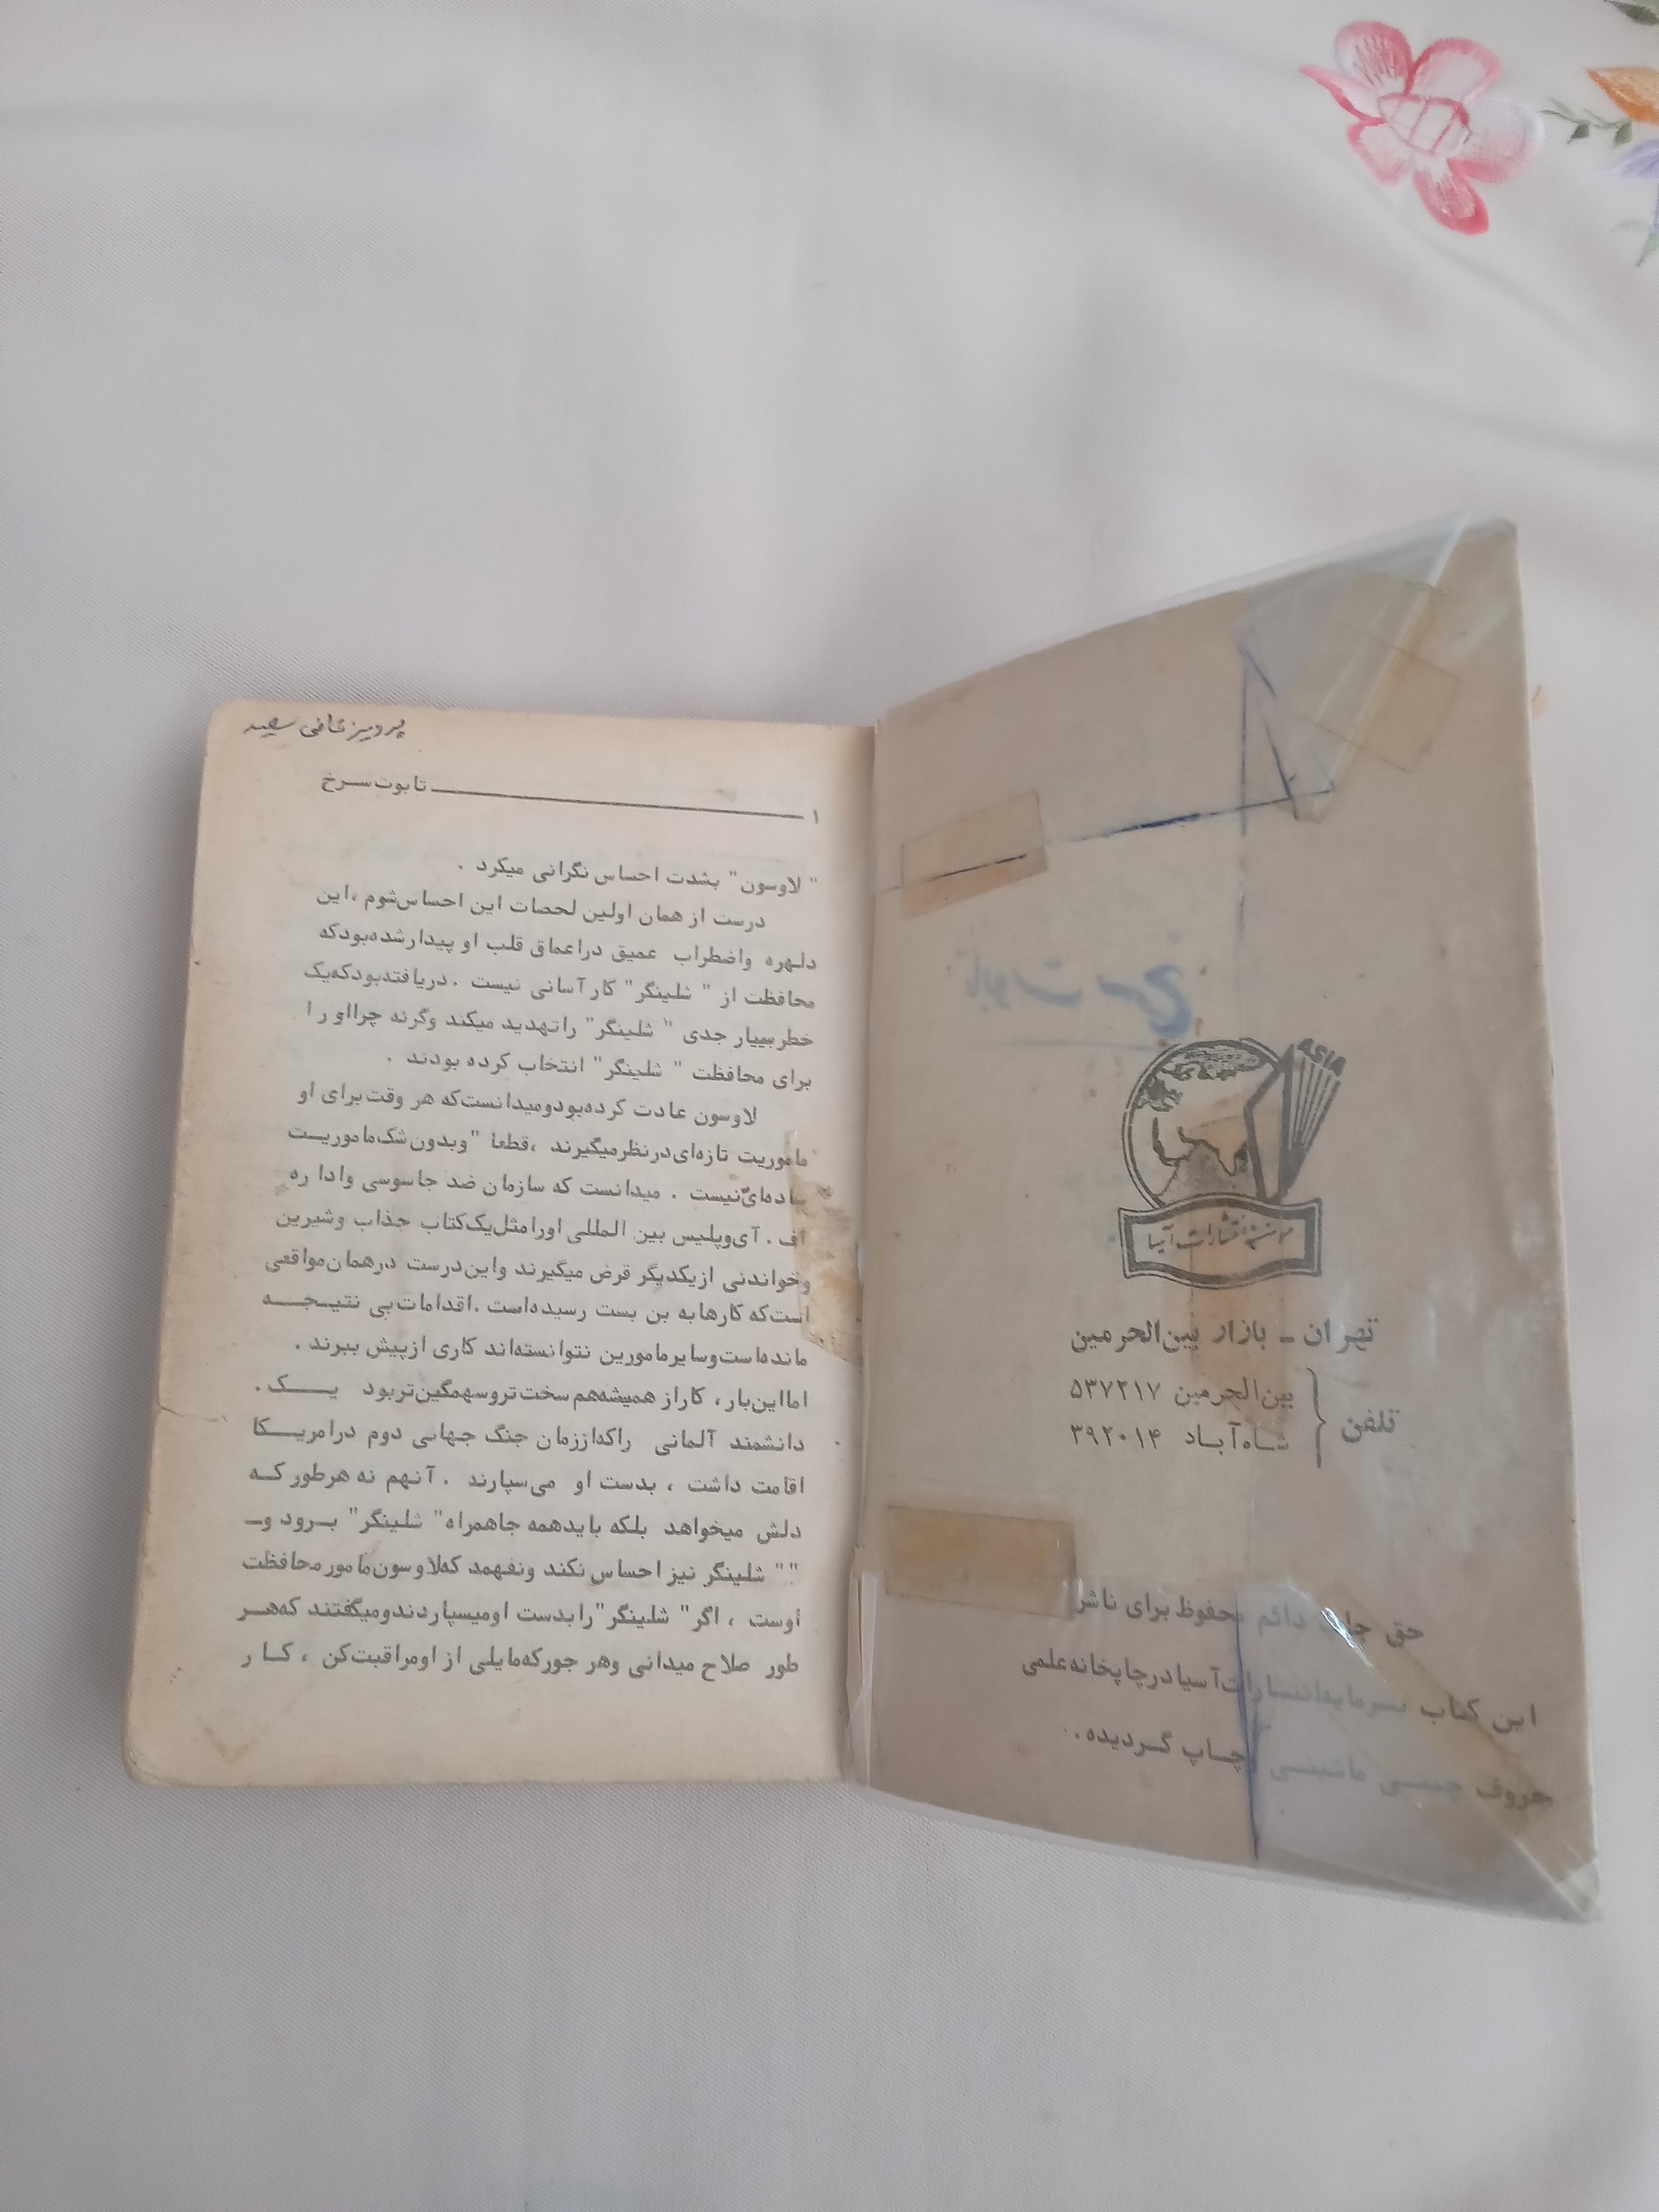 تابوت سرخ
ASIA
موسسه انتشارات آسیا
تهران ـ بازار بین‌الحرمین
تلفن
بین‌الحرمین ۵۳۷۲۱۷
شاه‌آباد ۳۹۲۰۱۴
حق چاپ دائم محفوظ برای ناشر
این کتاب بسرمایه انتشارات آسیا درچاپخانه علمی
حروف چینی ماشینی چاپ گردیده.
پرویز قاضی سعید
۱ تابوت سرخ
" لاوسون" بشدت احساس نگرانی میکرد .
درست از همان اولین لحصات این احساس شوم ،این
دلهره واضطراب عمیق دراعماق قلب او پیدارشده بودکه
محافظت از " شلینگر" کار آسانی نیست . دریافته بودکه یک
خطربسیار جدی " شلینگر" را تهدید میکند وگرنه چرااو را
برای محافظت " شلینگر" انتخاب کرده بودند .
لاوسون عادت کرده بودومیدانست که هر وقت برای او
ماموریت تازه‌ای درنظرمیگیرند ،قطعا "وبدون شک ماموریت
ساده‌ای نیست . میدانست که سازمان ضد جاسوسی وادا ره
اف . آی وپلیس بین المللی اورا مثل یک کتاب جذاب وشیرین
وخواندنی ازیکدیگر قرض میگیرند واین درست درهمان مواقعی
است که کارها به بن بست رسیده است .اقدامات بی نتیجه
مانده‌است وسایرمامورین نتوانسته‌اند کاری ازپیش ببرند .
اما این بار، کاراز همیشه هم سخت تر وسهمگین تربود یک .
دانشمند آلمانی راکه اززمان جنگ جهانی دوم درامریکا
اقامت داشت ، بدست او می سپارند . آنهم نه هرطور که
دلش میخواهد بلکه باید همه جا همراه " شلینگر" برود و ـ
" " شلینگر نیز احساس نکند ونفهمد که لاوسون مامورمحافظت
اوست ، اگر " شلینگر" را بدست اومیسپاردندومیگفتند که هر
طور صلاح میدانی وهر جورکه مایلی از اومراقبت کن ، کا ر